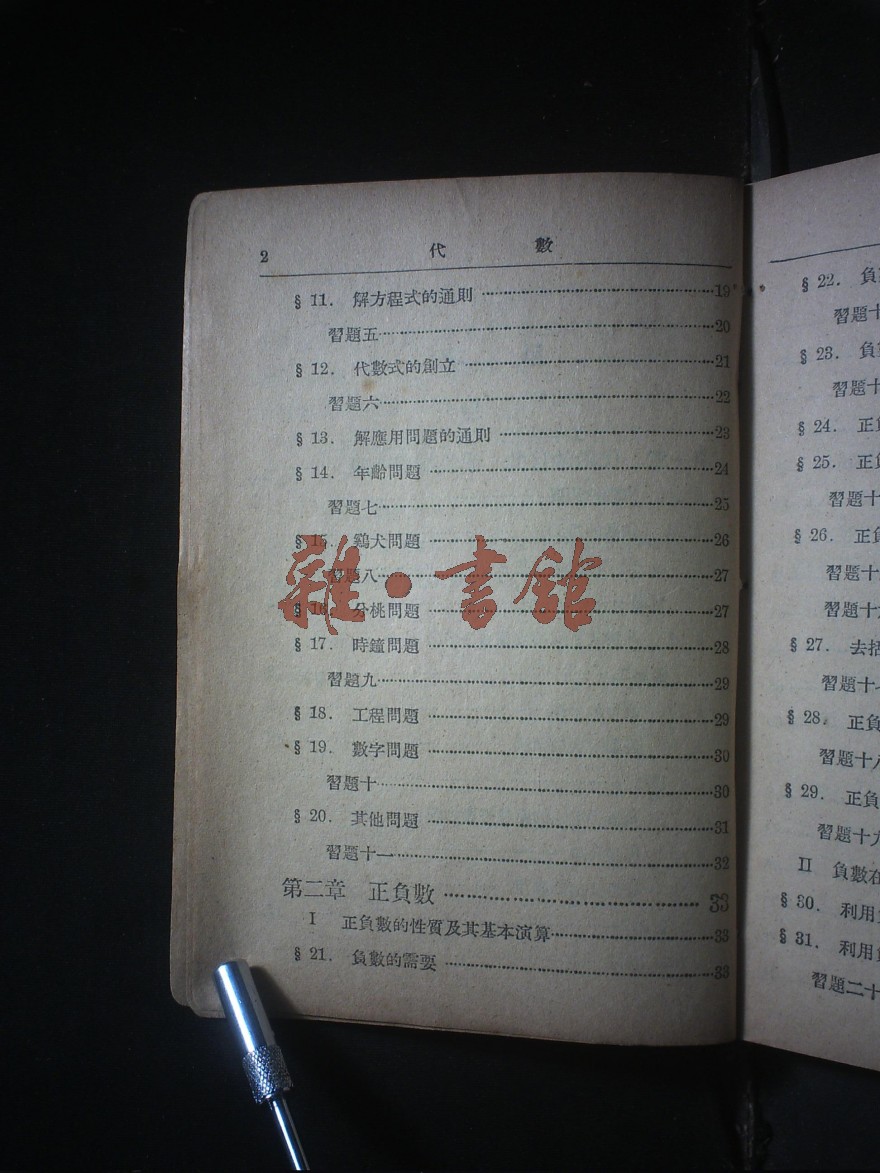 2 代 數
§ 11. 解方程式的通則 ……19
習題五……20
§ 12. 代數式的創立 ……21
習題六……22
§ 13. 解應用問題的通則 ……23
§ 14. 年齡問題 ……24
習題七……25
§ 15. 鷄犬問題 ……26
習題八……27
§ 16. 分桃問題 ……27
§ 17. 時鐘問題 ……28
習題九……29
§ 18. 工程問題 ……29
§ 19. 數字問題 ……30
習題十……30
§ 20. 其他問題 ……31
習題十一……32
第二章 正負數 ……33
I 正負數的性質及其基本演算……33
§ 21. 負數的需要 ……33
雜·書館
§ 22. 負
習題十
§ 23. 負
習題十
§ 24. 正
§ 25. 正
習題十
§ 26. 正
習題十
習題十
§ 27. 去括
習題十
§ 28. 正負
習題十八
§ 29. 正負
習題十九
II 負數在
§ 30. 利用
§ 31. 利用
習題二十